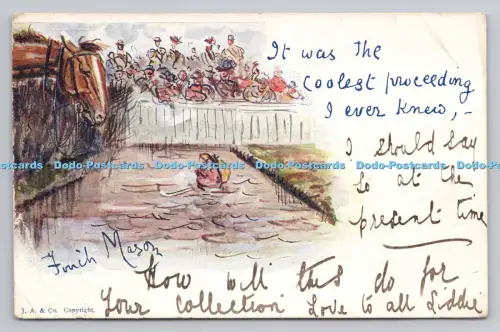 It was the
coolest proceeding
I ever knew,-
I should say
So at the
present time
Finch Mason
How will this do for
Your collection Love to all Liddie
J. A. & Co. Copyright.
Dodo-Postcards Dodo-Postcards Dodo-Postcards Dodo-Postcards